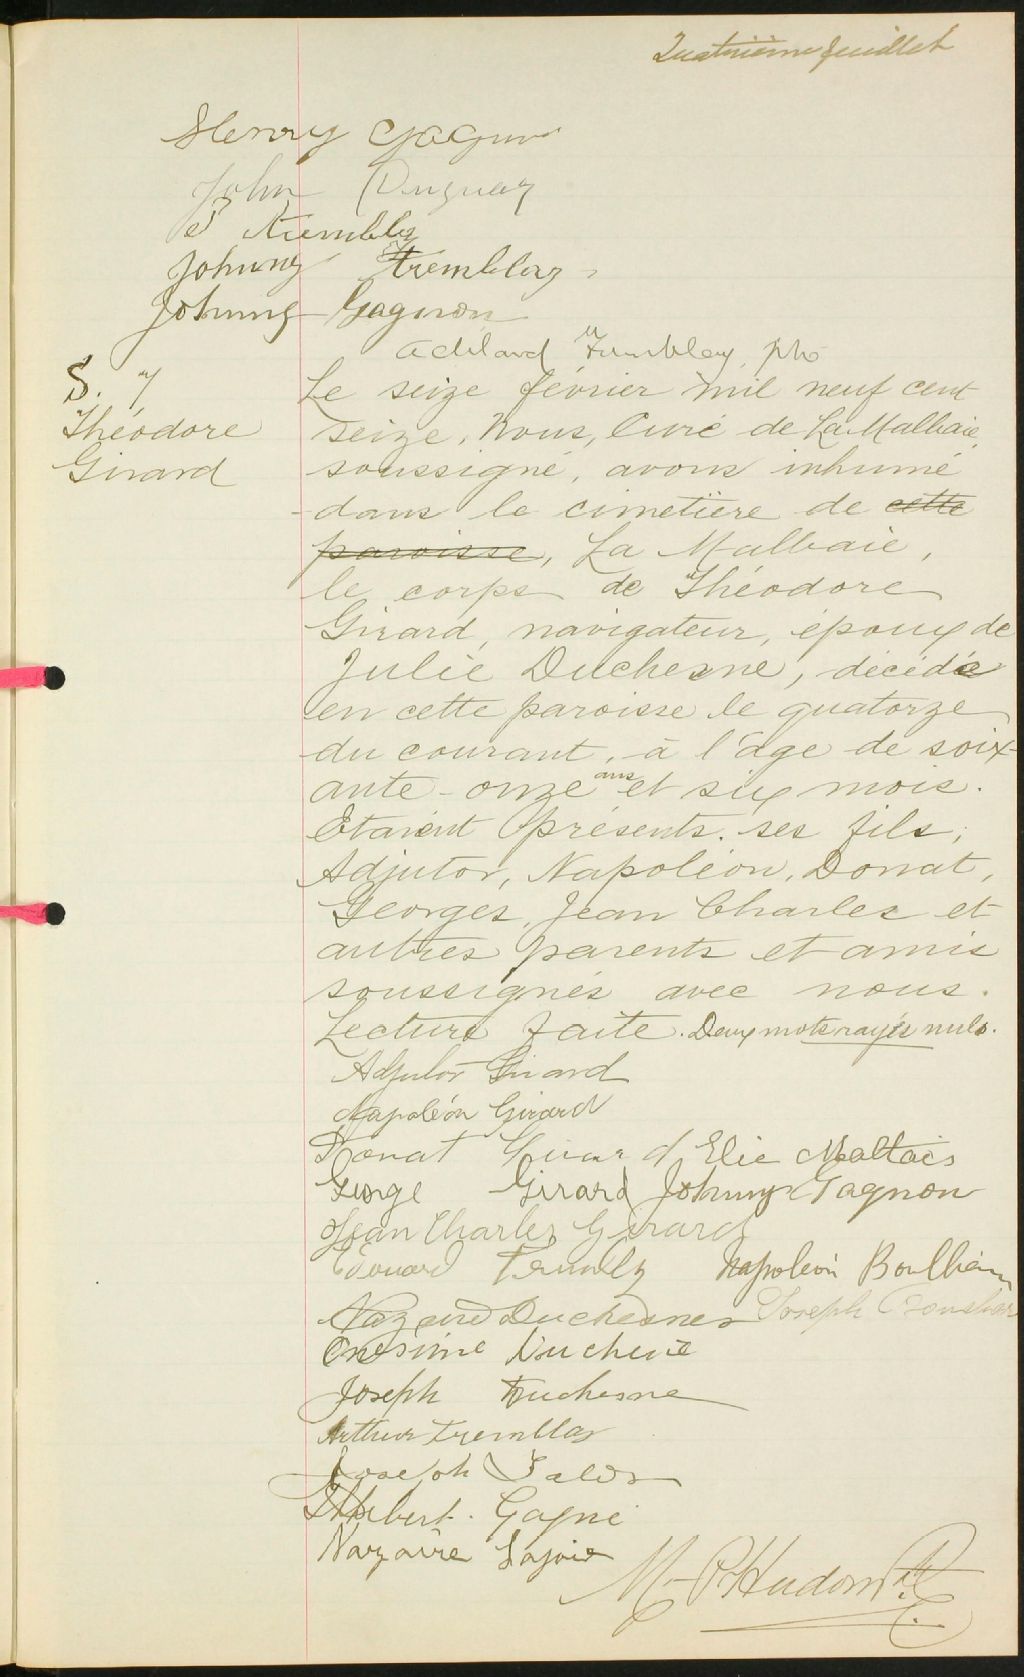 Quatrième feuillet
Henry Gagnon
John Duguay
P Tremblay
Johnny Tremblay
Johnny Gagnon
Adélard Tremblay, ptre
S. 7
Théodore
Girard
Le seize février mil neuf cent
seize, Nous, Curé de La Malbaie,
soussigné, avons inhumé
dans le cimetière de cette
paroisse, La Malbaie,
le corps de Théodore
Girard, navigateur, époux de
Julie Duchesne, décédé
en cette paroisse le quatorze
du courant, à l'âge de soix-
ante-onze ans et six mois.
Etaient présents ses fils;
Adjutor, Napoléon, Donat,
Georges, Jean Charles et
autres parents et amis
soussignés avec nous.
Lecture faite. Deux mots rayés nuls.
Adjutor Girard
Napoléon Girard
Donat Girard Elie Maltais
George Girard Johnny Gagnon
Jean Charles Girard
Edouard Napoléon
Duchesnes Joseph
Onésime Duchene
Joseph Duchesne
Arthur Tremblay
Joseph
Gagné
Nazaire Lajoie
Hudon Ptre